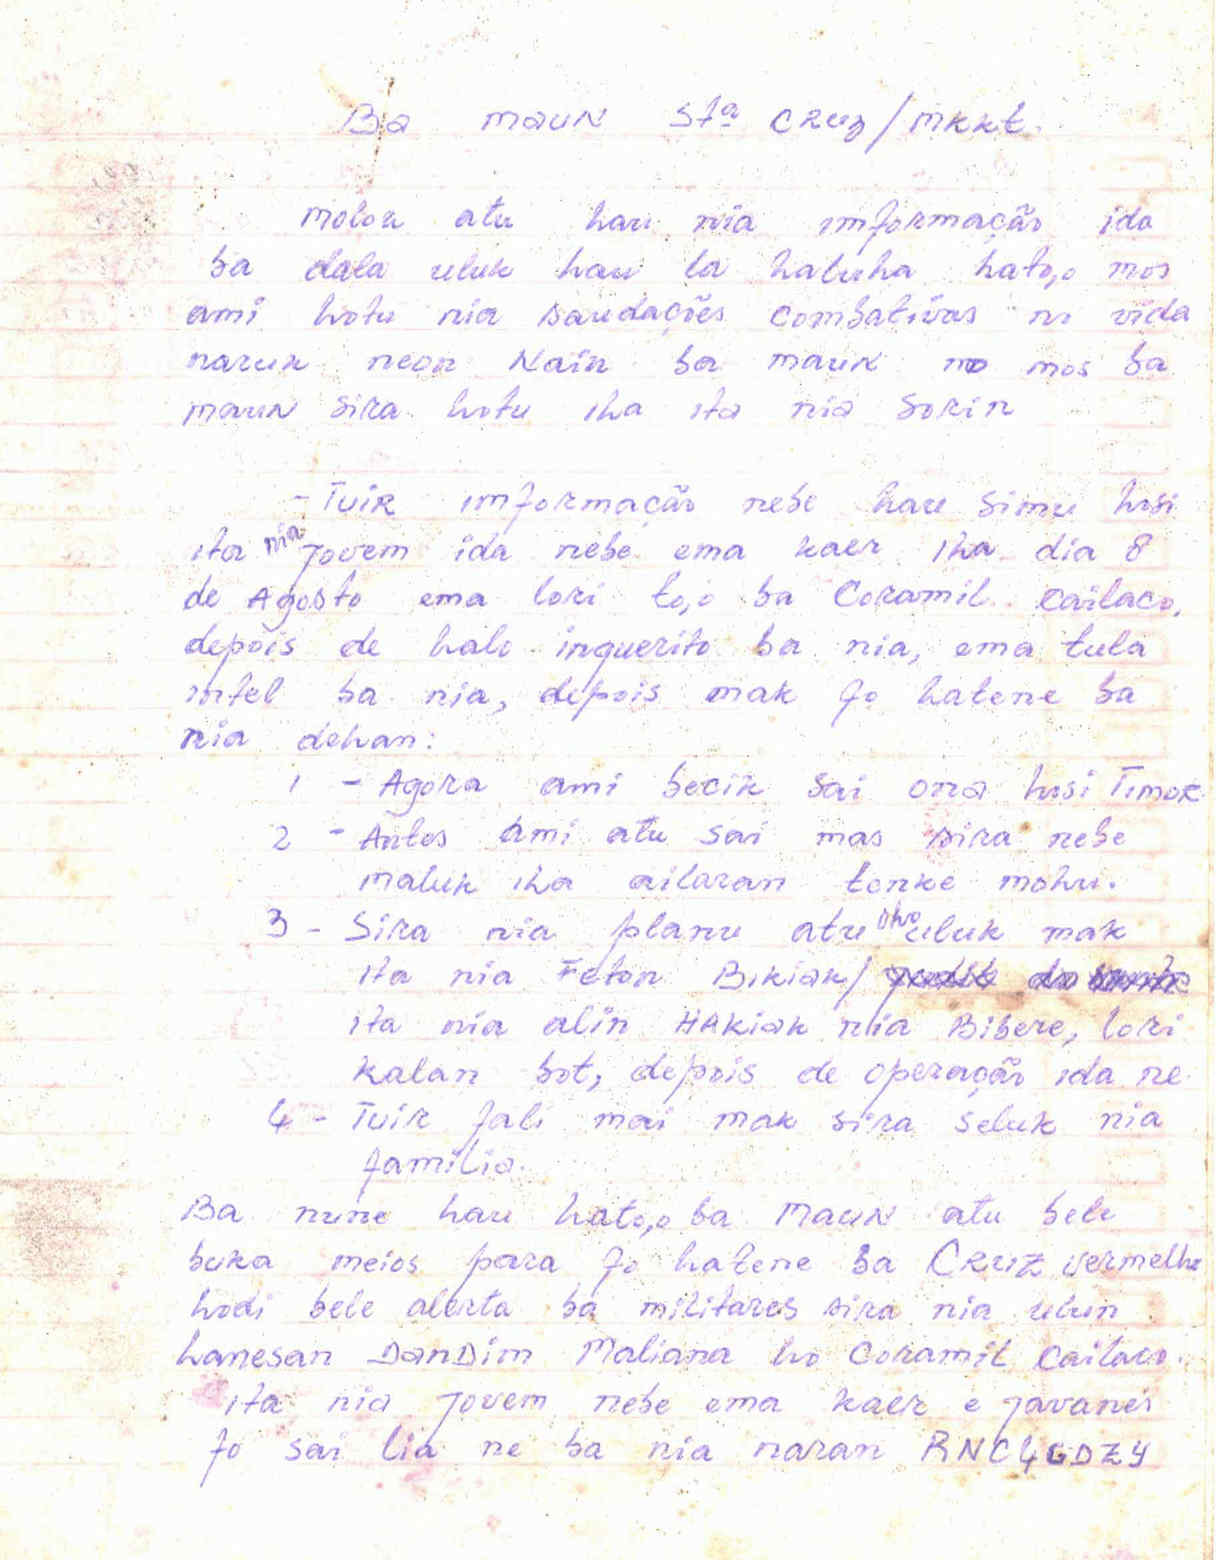 Ba maun Sta Cruz/MKKt.
Molok atu hau nia imformação ida
ba dala uluk hau la haluha hato,o mos
ami hotu nia saudações combativas no vida
naruk neon Nain ba maun no mos ba
maun sira hotu iha ita nia Sorin
- Tuir imformação nebe hau simu husi
ita nia jovem ida nebe ema kaer iha dia 8
de Agosto ema lori to,o ba Coramil Cailaco,
depois de halo inquerito ba nia, ema tula
intel ba nia, depois mak fo hatene ba
nia dehan:
1 - Agora ami becik sai ona husi Timor
2 - Antes ami atu sai mas sira nebe
maluk iha ailaran tenke mohu.
3 - Sira nia planu atu oho uluk mak
ita nia Feton Bikiak/
ita nia alin HAKiak nia Bibere, lori
kalan bot, depois de operação ida ne
4 - Tuir fali mai mak sira seluk nia
familia.
Ba nune hau hato,o ba Maun atu bele
buka meios para fo hatene ba Cruz vermelha
hodi bele alerta ba militares sira nia ulun
hanesan DanDim Maliana ho Coramil Cailaco.
ita nia jovem nebe ema kaer e javanes
fo sai lia ne ba nia naran RNC4GDZY